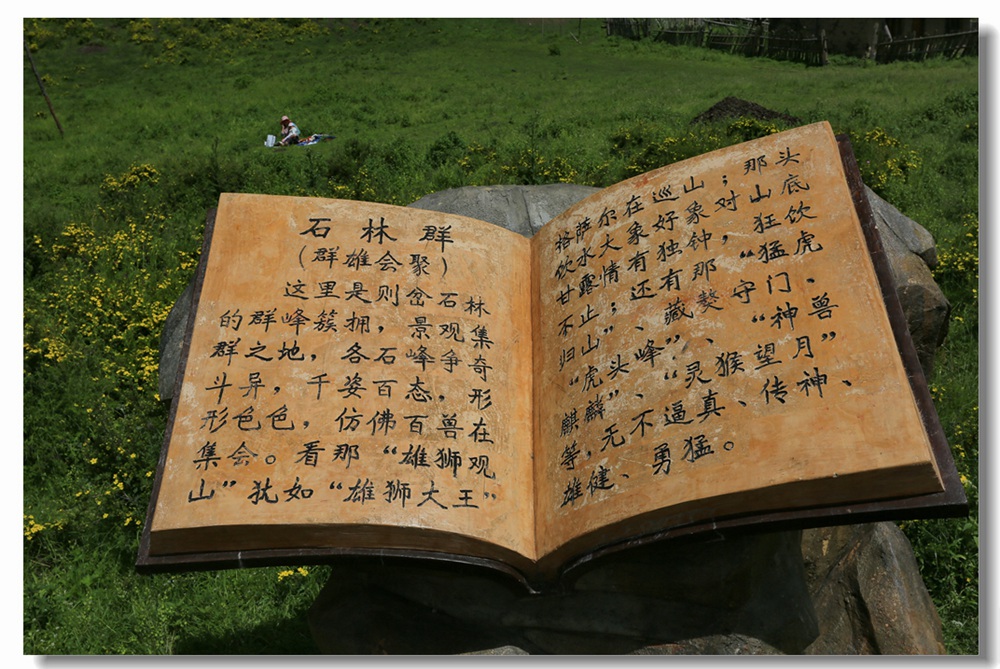 石林群
(群雄会聚)
这里是则岔石林
的群峰簇拥,景观集
群之地,各石峰争奇
斗异,千姿百态,形
形色色,仿佛百兽在
集会。看那“雄狮观
山”犹如“雄狮大王”
格萨尔在巡山;那头
饮水大象好象对山底
甘露情有独钟,狂饮
不止;还有那“猛虎
归山”、藏獒守门、
“虎头峰”、“神兽
麒麟”、“灵猴望月”
等,无不逼真、传神、
雄健、勇猛。